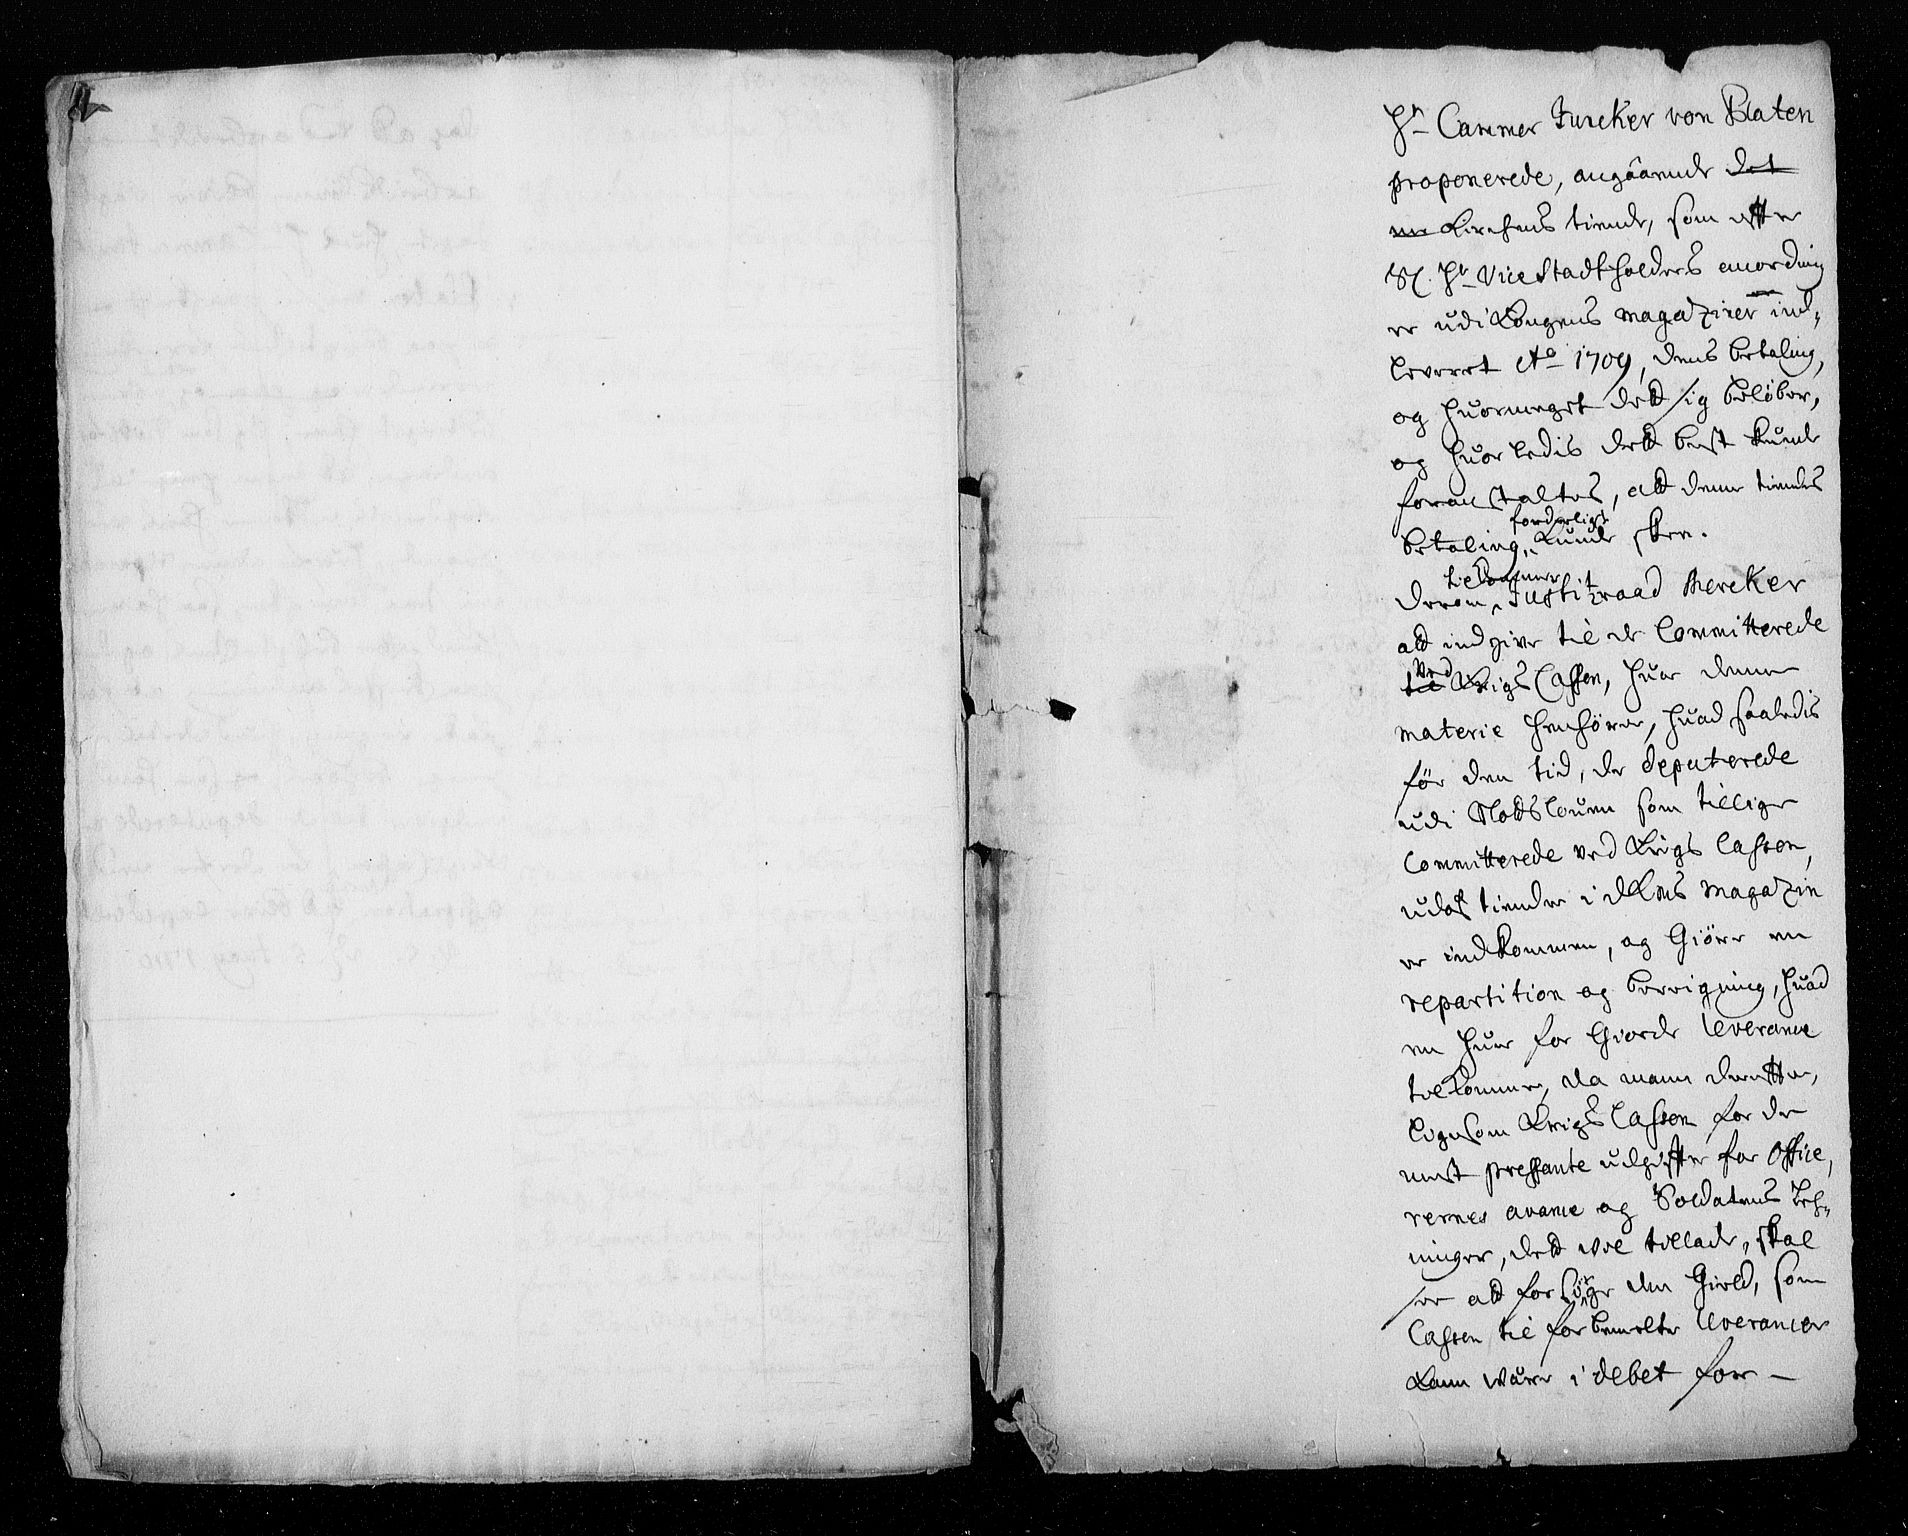 Hr Cammer Juncker von Platen
proponerede, angåaende det
en Kirchens tiende, som effter
Sl. Hr Vice Stadtholders anording
er udi Kongens magaziner ind-
leveret Ao 1709, dens betaling,
og huormeget det sig beløber,
og huorledis det best kunde
foranstaltes, att denne tiendes
forderligst
betaling kunde skee.
tilkommer
Derom Justitzraad Mercker
att indgive til de Committerede
ved
til Krigs Cassen, huor denne
materie henhører, huad saaledis
før den tid, de deputerede
udi Slotsloven som tillige
Committerede ved Krigs Cassen,
udaf tiender i magazin
er indkommen, og Giøre en
repartition og beregning, huad
en huer for Giorde leverance
tilkommer, da mann dereffter,
ligesom Krigs Cassen for de
mest pressante udgiffter for Office-
rernes avance og Soldatens Leh-
ninger, det vil tillade, skal
see att forsørge den Gield, som
Cassen til forbemelte leverancer
kann være i debet for —